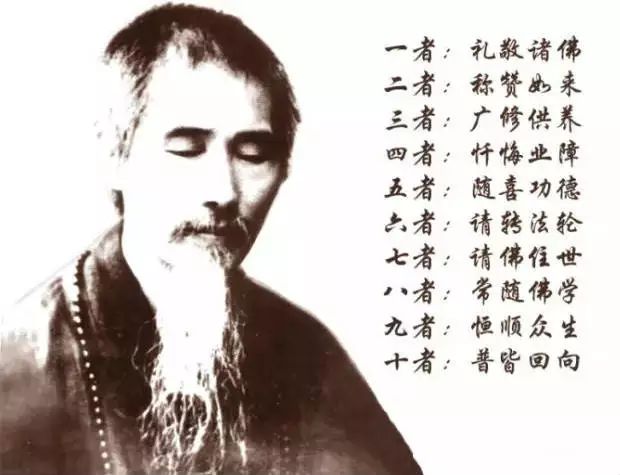 一者：礼敬诸佛
二者：称赞如来
三者：广修供养
四者：忏悔业障
五者：随喜功德
六者：请转法轮
七者：请佛住世
八者：常随佛学
九者：恒顺众生
十者：普皆回向